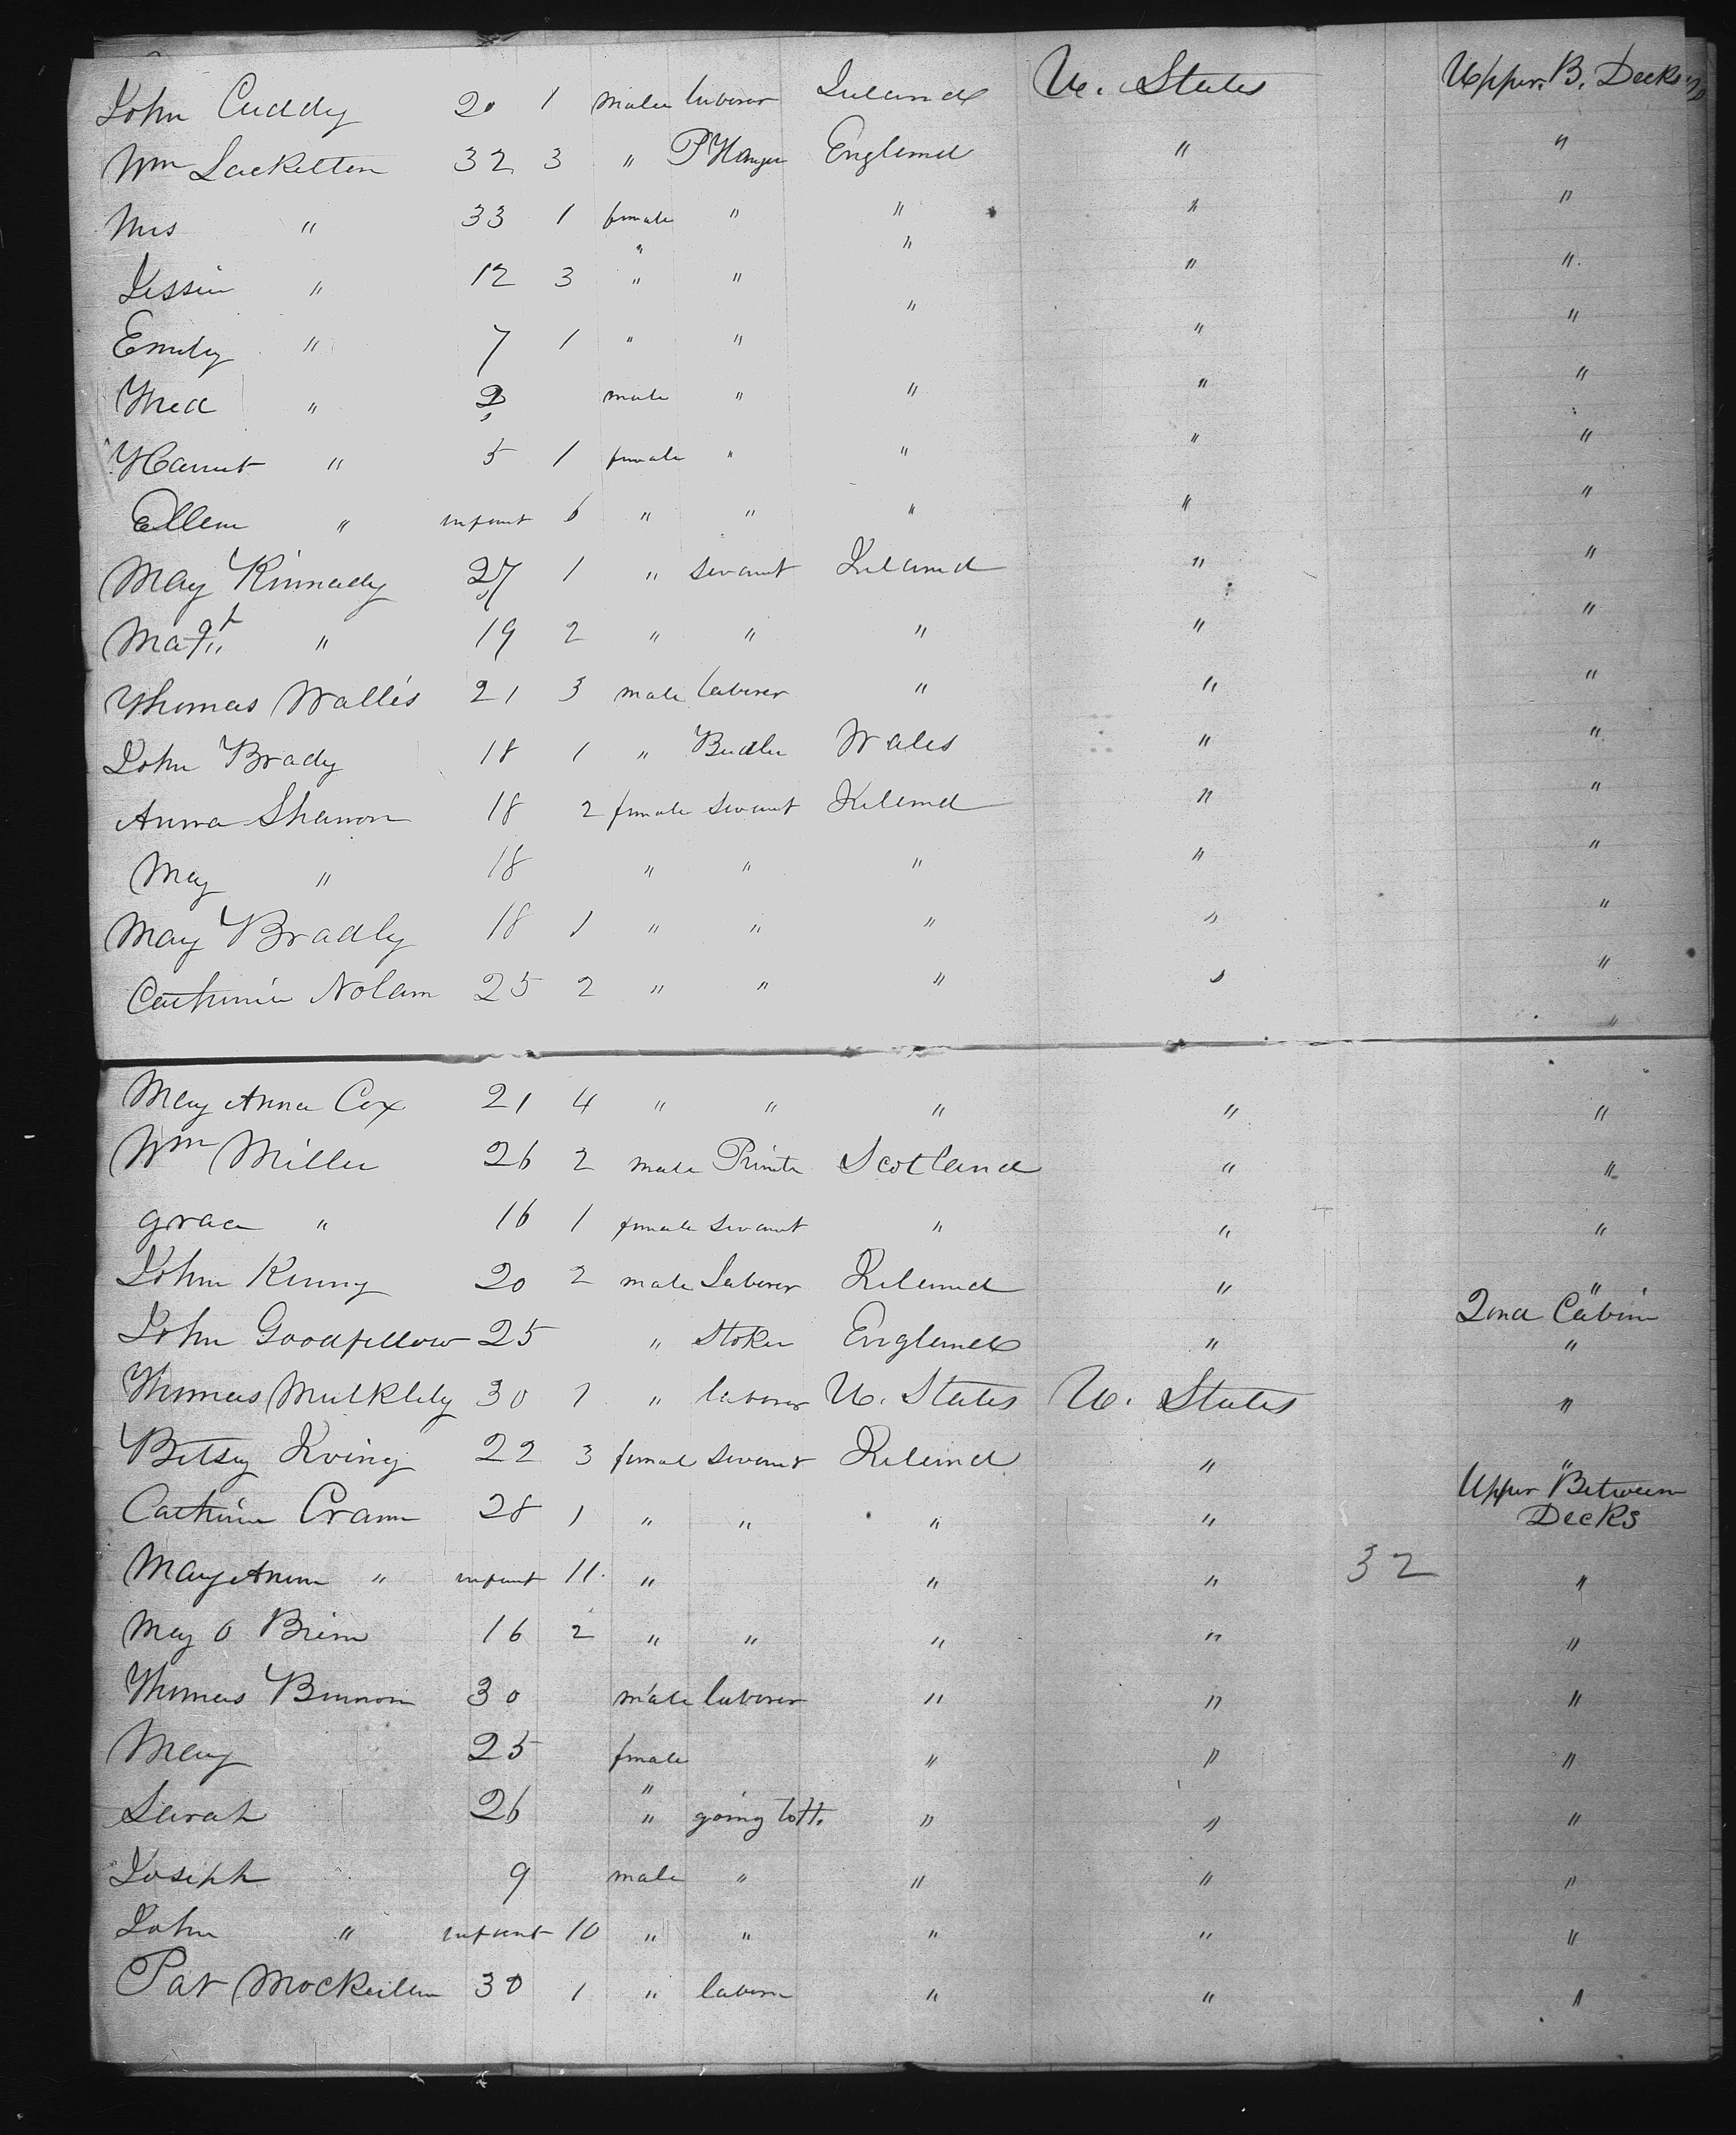 John Cuddy 20 1 male laborer Ireland U. States Upper. B. Decks
Wm Lacketten 32 3 " P Hanger England " "
Mrs " 33 1 female " " " "
" "
Jessie " 12 3 " " " "
Emily " 7 1 " " " " "
Fred " 2 male " " " "
Harriet " 5 1 female " " " "
Ellen " infant 6 " " " " "
Mary Kinnady 27 1 " servant Ireland " "
Magt " 19 2 " " " " "
Thomas Wallis 21 3 male laborer " " "
John Brady 18 1 " Butler Wales " "
Anna Shanon 18 2 female servant Ireland " "
May " 18 " " " " "
May Bradly 18 1 " " " " "
Catherine Nolan 25 2 " " " " "
"
May Anna Cox 21 4 " " " " "
Wm Miller 26 2 male Printer Scotland " "
grace " 16 1 female servant " " "
John Kenny 20 2 male Laborer Ireland " "
2ond Cabin
John Goodfellow 25 " Stoker England " "
Thomas 30 1 " laborer U. States U. States "
Betsy 22 3 female servant Ireland " "
Upper Between
Catherine Crann 28 1 " " " " Decks
Mary Ann " infant 11. " " " 32 "
May O Brien 16 2 " " " " "
Thomas 30 male laborer " " "
Mary 25 female " " "
"
Sarah 26 " going to H. " " "
Joseph 9 male " " " "
John " infant 10 " " " " "
Pat 30 1 " laborer " " "